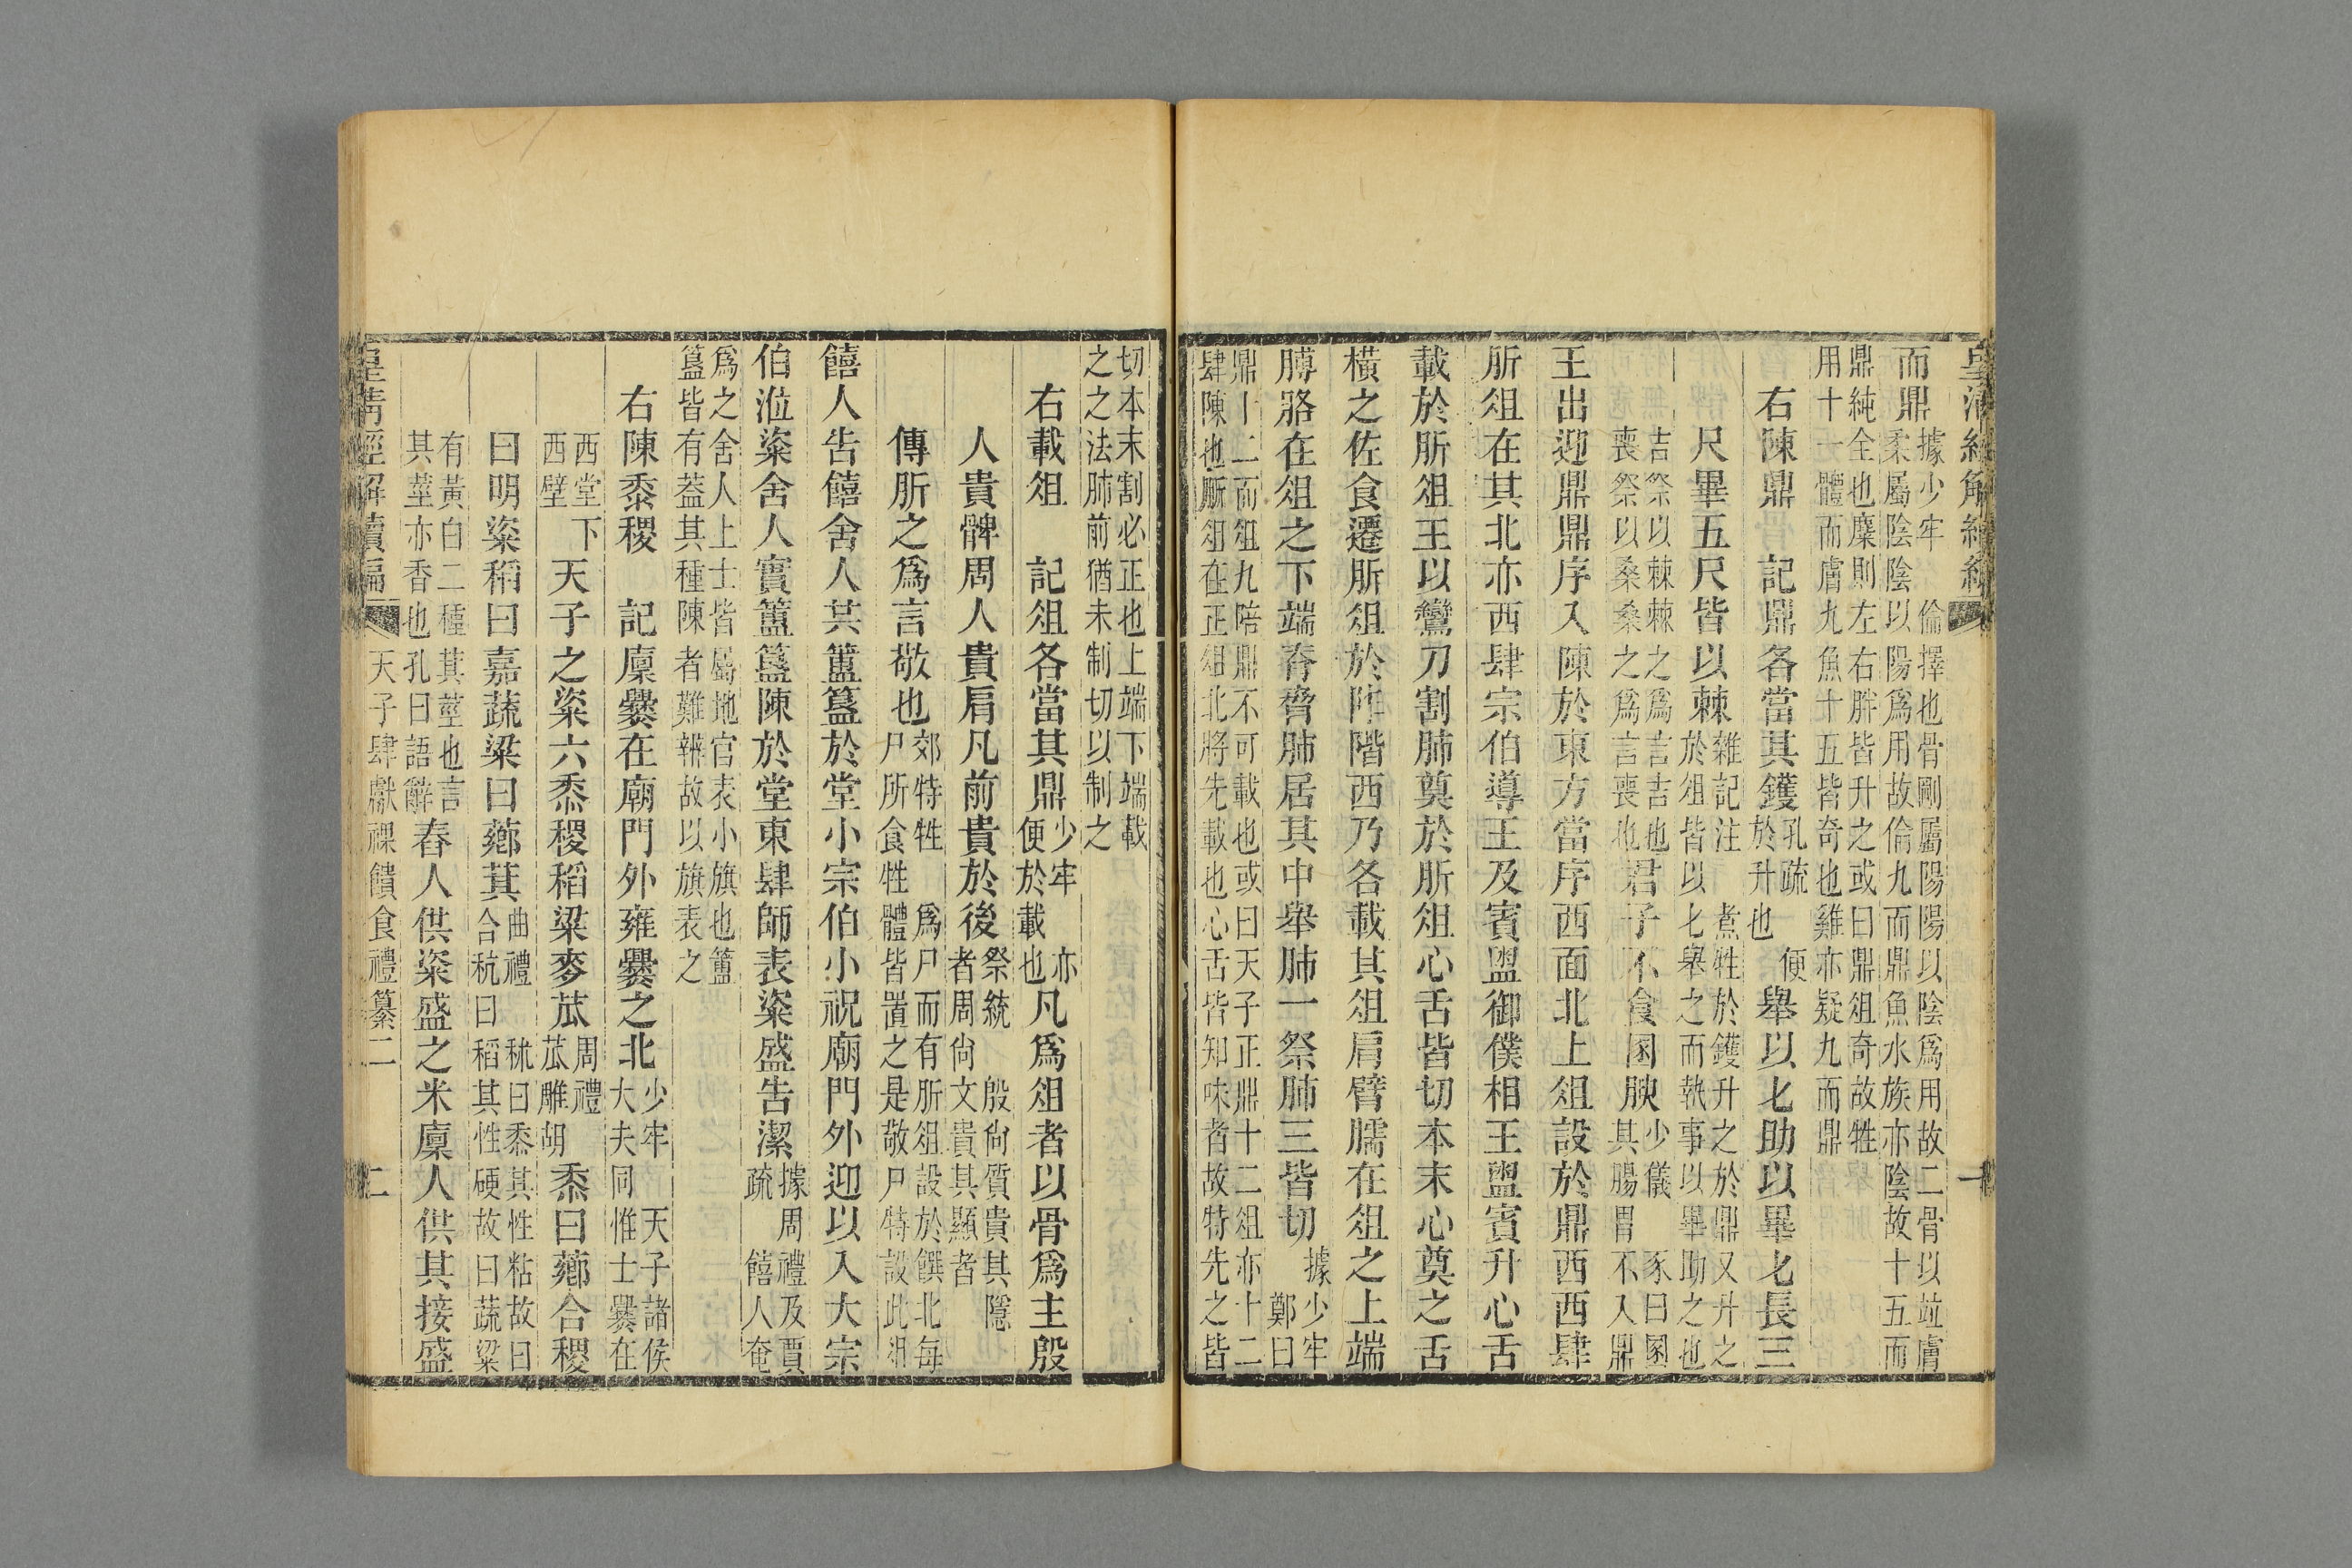 皇清經解續編
而鼎據少牢 倫擇也骨剛屬陽陽以陰爲用故二骨以竝膚
柔屬陰陰以陽爲用故倫九而鼎魚水族亦陰故十五而
鼎純全也麋則左右胖皆升之或曰鼎俎奇故牲
用十一體而膚九魚十五皆奇也雞亦疑九而鼎
右陳鼎 記鼎各當其鑊孔疏 便
於升也舉以匕助以畢匕長三
尺畢五尺皆以棘雜記注 煮牲於鑊升之於鼎又升之
於俎皆以匕舉之而執事以畢助之也
吉祭以棘棘之爲言吉也
喪祭以桑桑之爲言喪也君子不食圂腴少儀 豕曰圂
其腸胃不入鼎
王出迎鼎鼎序入陳於東方當序西面北上俎設於鼎西西肆
肵俎在其北亦西肆宗伯導王及賓盥御僕相王盥賓升心舌
載於肵俎王以鸞刀割肺奠於肵俎心舌皆切本末心奠之舌
橫之佐食遷肵俎於阼階西乃各載其俎肩臂臑在俎之上端
膊胳在俎之下端脊脅肺居其中舉肺一祭肺三皆切據少牢
鄭曰
鼎十二而俎九陪鼎不可載也或曰天子正鼎十二俎亦十二
肆陳也肵俎在正俎北將先載也心舌皆知味者故特先之皆
切本末割必正也上端下端載
之之法肺前猶未制切以制之
右載俎 記俎各當其鼎少牢 亦
便於載也凡爲俎者以骨爲主殷
人貴髀周人貴肩凡前貴於後祭統 殷尙質貴其隱
者周尙文貴其顯者
傳肵之爲言敬也郊特牲 爲尸而有肵俎設於饌北每
尸所食牲體皆置之是敬尸特設此俎
饎人告饎舍人共簠簋於堂小宗伯小祝廟門外迎以入大宗
伯涖粢舍人實簠簋陳於堂東肆師表粢盛告潔據周禮及賈
疏 饎人奄
爲之舍人上士皆屬地官表小旗也簠
簋皆有蓋其種陳者難辨故以旗表之
右陳黍稷 記廩爨在廟門外雍爨之北少牢 天子諸侯
大夫同惟士爨在
西堂下
西壁 天子之粢六黍稷稻粱麥苽周禮
苽雕胡 黍曰薌合稷
曰明粢稻曰嘉蔬粱曰薌萁曲禮 秫曰黍其性粘故曰
合秔曰稻其性硬故曰蔬粱
有黃白二種萁莖也言
其莖亦香也孔曰語辭舂人供粢盛之米廩人供其接盛
皇清經解續編 天子肆獻祼饋食禮纂二 二